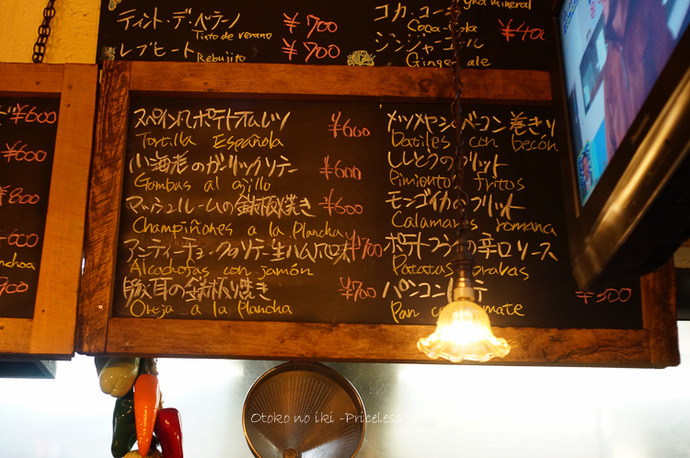 ティント・デ・ベラーノ ¥700
Tinto de verano
レブヒート ¥700
Rebujito
コカ・コーラ
Coca-Cola
mineral
ジンジャーエール
Ginger ale
¥600
¥600
¥800
¥600
¥900
スペイン風ポテトオムレツ ¥600
Tortilla Española
小海老のガーリックソテー ¥600
Gambas al ajillo
マッシュルームの鉄板焼き ¥600
Champiñones a la Plancha
アーティーチョークのソテー生ハム ¥700
Alcachofas con jamón
豚耳の鉄板焼き ¥700
Oreja a la Plancha
ナツメヤシのベーコン巻き
Datiles con becón
ししとうのフリット
Pimiento fritos
モンゴイカのフリット
Calamares romana
ポテトフライの辛口ソース
Patatas bravas
パンコン
Pan con tomate
¥500
Otoko no iki -Priceless